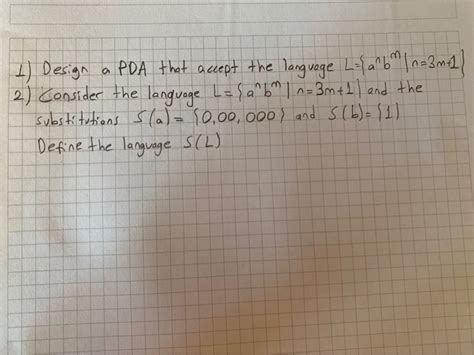 1) Design a PDA that accept the language L={aⁿbᵐ | n=3m+1}
2) Consider the language L={aⁿbᵐ | n=3m+1} and the
substitutions S(a)= {0,00,000} and S(b)= {1}
Define the language S(L)